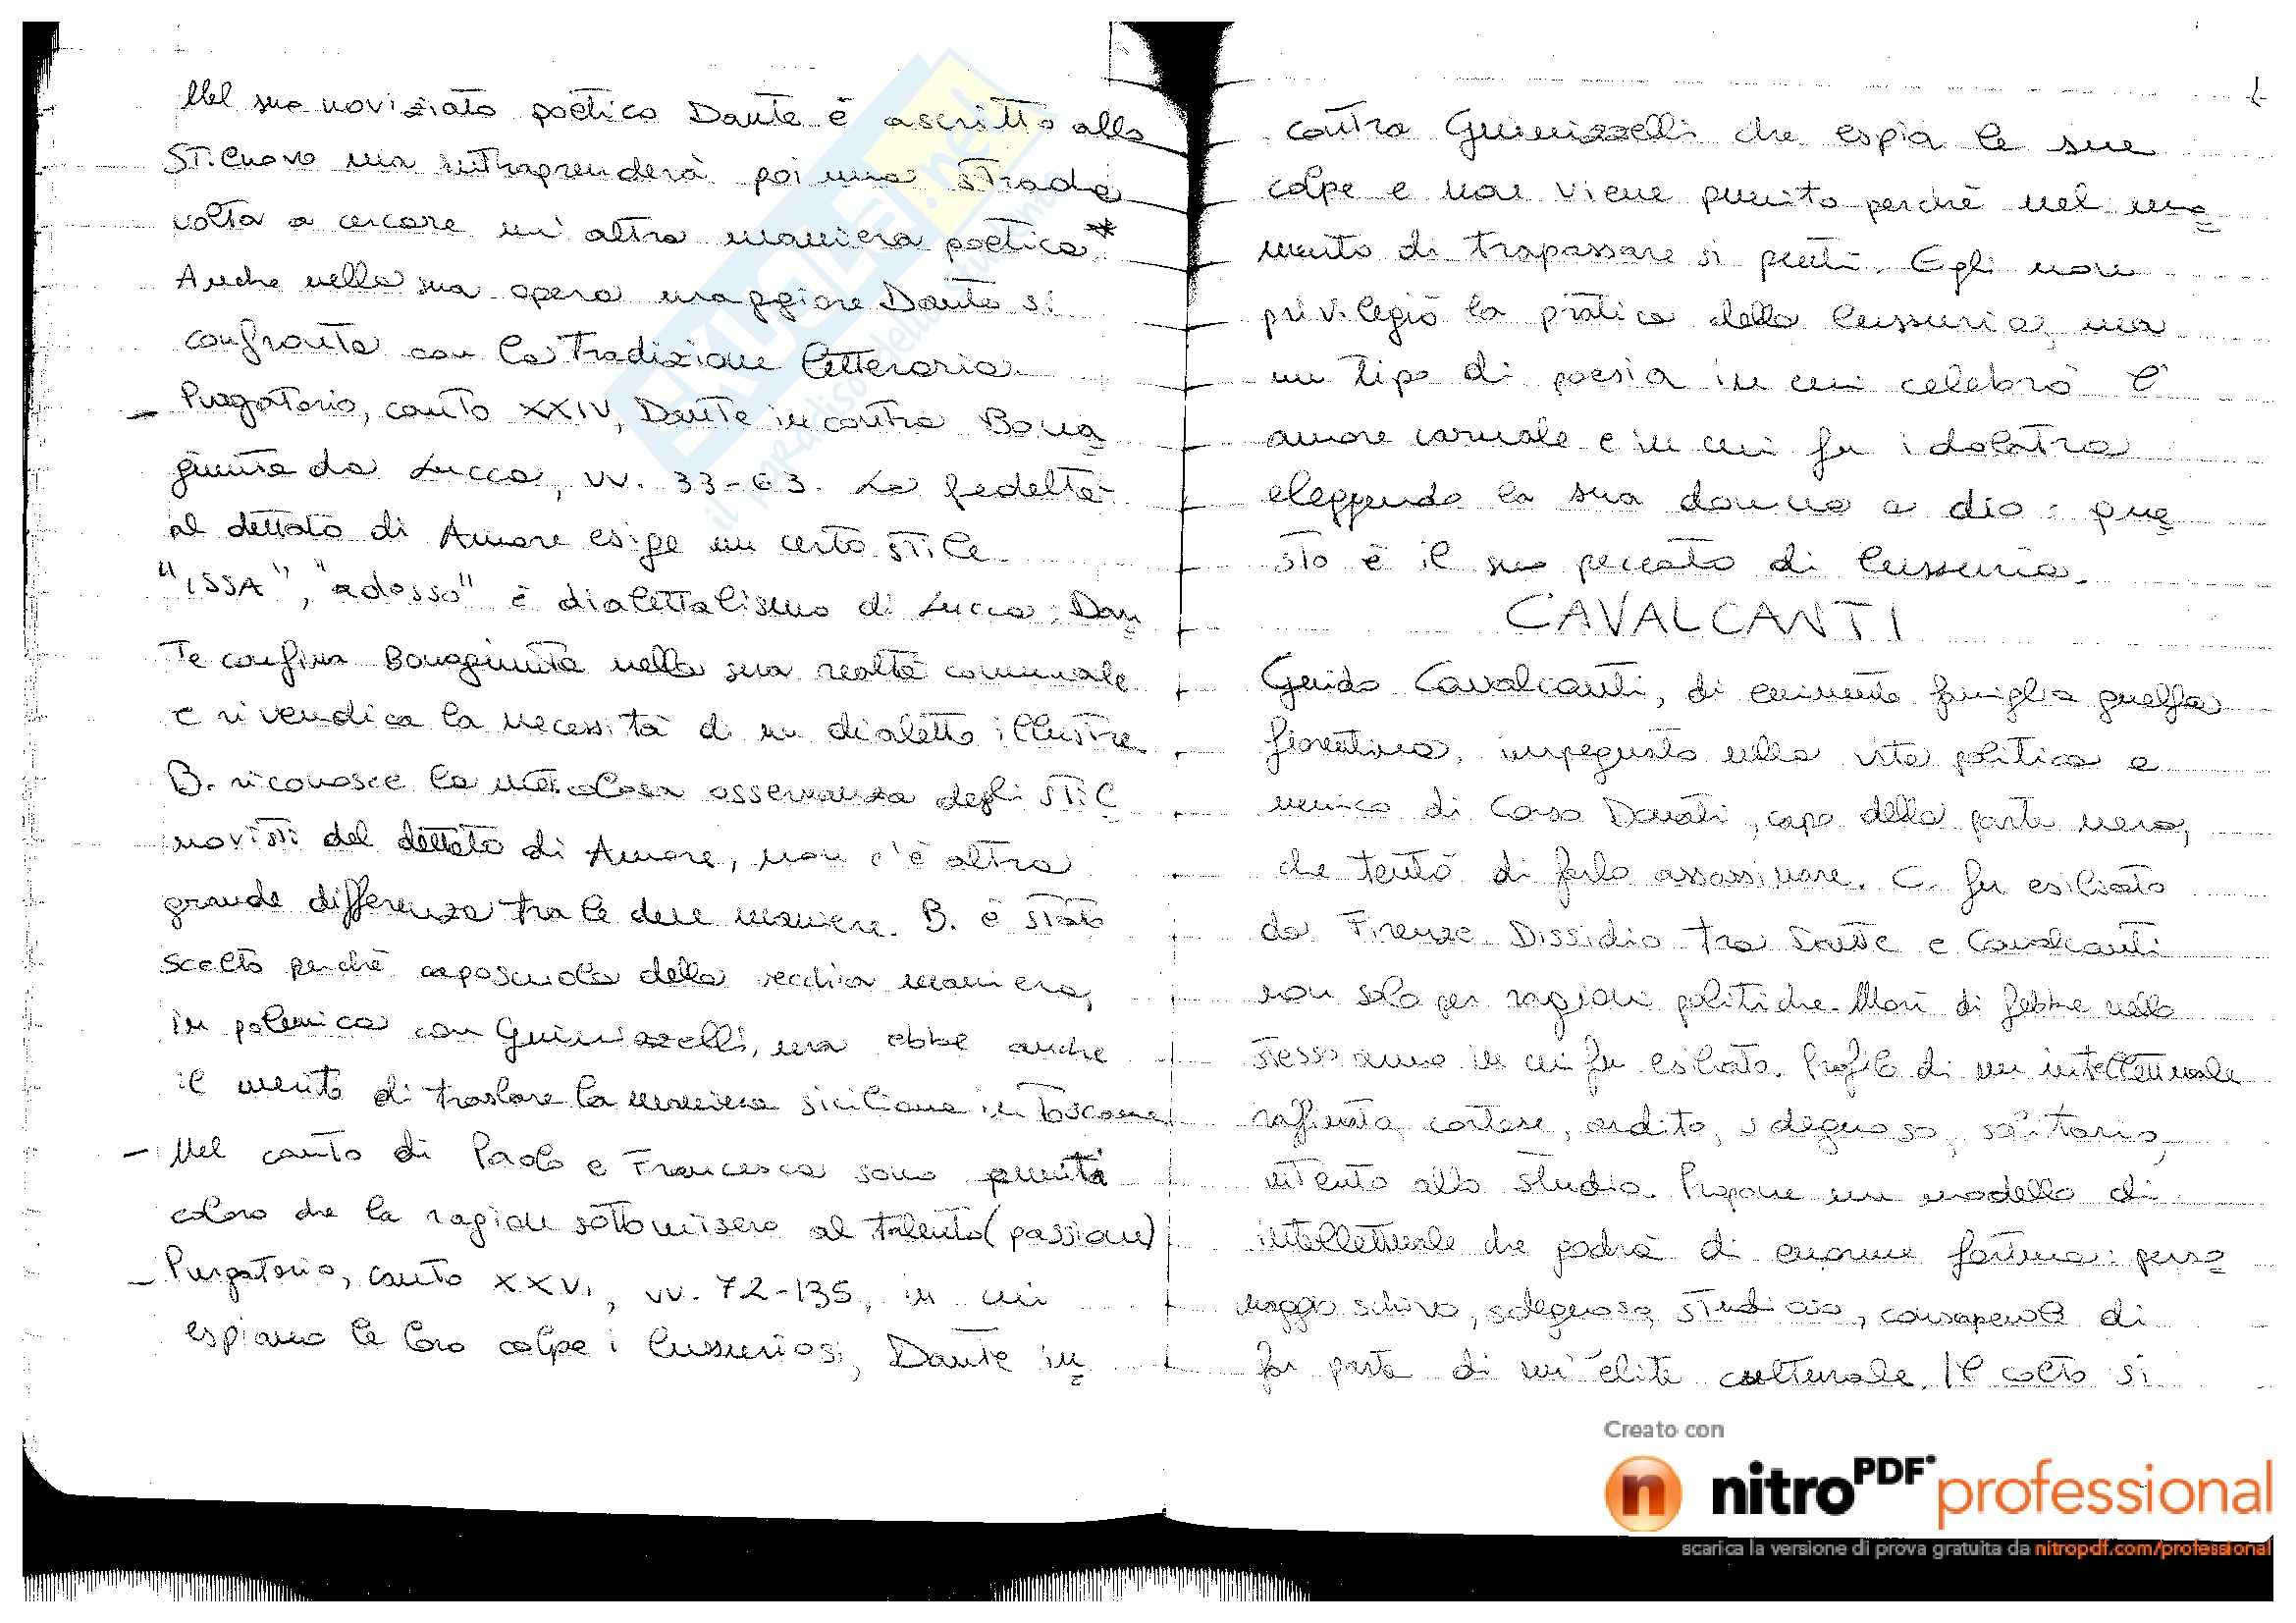 Nel suo noviziato poetico Dante è ascritto allo
Stilnovo ma intraprenderà poi una strada
volta a cercare un'altra maniera poetica*
Anche nella sua opera maggiore Dante si
confronta con la tradizione letteraria.
- Purgatorio, canto XXIV, Dante incontra Bona=
giunta da Lucca, vv. 33-63. La fedeltà
al dettato di Amore esige un certo stile.
"ISSA", "adesso" è dialettalismo di Lucca: Dan=
te confina Bonagiunta nella sua realtà comunale
e rivendica la necessità di un dialetto illustre
B. riconosce la meticolosa osservanza degli stil=
novisti del dettato di Amore, non c'è altra
grande differenza tra le due maniere. B. è stato
scelto perchè caposcuola della vecchia maniera,
in polemica con Guinizzelli, ma ebbe anche
il merito di traslare la maniera siciliana in Toscana
- Nel canto di Paolo e Francesca sono puniti
coloro che la ragion sottomisero al talento (passione)
- Purgatorio, canto XXVI, vv. 72-135, in cui
espiano le loro colpe i lussuriosi, Dante in=
contra Guinizzelli che espia le sue
colpe e non viene punito perchè nel mo=
mento di trapassare si pentì. Egli non
privilegiò la pratica della lussuria, ma
un tipo di poesia in cui celebrò l'
amore carnale e in cui fu idolatra
eleggendo la sua donna a dio: que=
sto è il suo peccato di lussuria.
CAVALCANTI
Guido Cavalcanti, di eminente famiglia guelfa
fiorentina, impegnato nella vita politica e
nemico di Corso Donati, capo della parte nera,
che tentò di farlo assassinare. C. fu esiliato
da Firenze. Dissidio tra Dante e Cavalcanti
non solo per ragioni politiche. Morì di febbre nello
stesso anno in cui fu esiliato. Profilo di un intellettuale
raffinato, cortese, ardito, sdegnoso, solitario,
intento allo studio. Propone un modello di
intellettuale che godrà di enorme fortuna: perso=
naggio schivo, sdegnoso, studioso, consapevole di
far parte di un'élite culturale. Il colto si
EKUOLE.net
il paradiso dello studente
Creato con
nitroPDF professional
scarica la versione di prova gratuita da nitropdf.com/professional